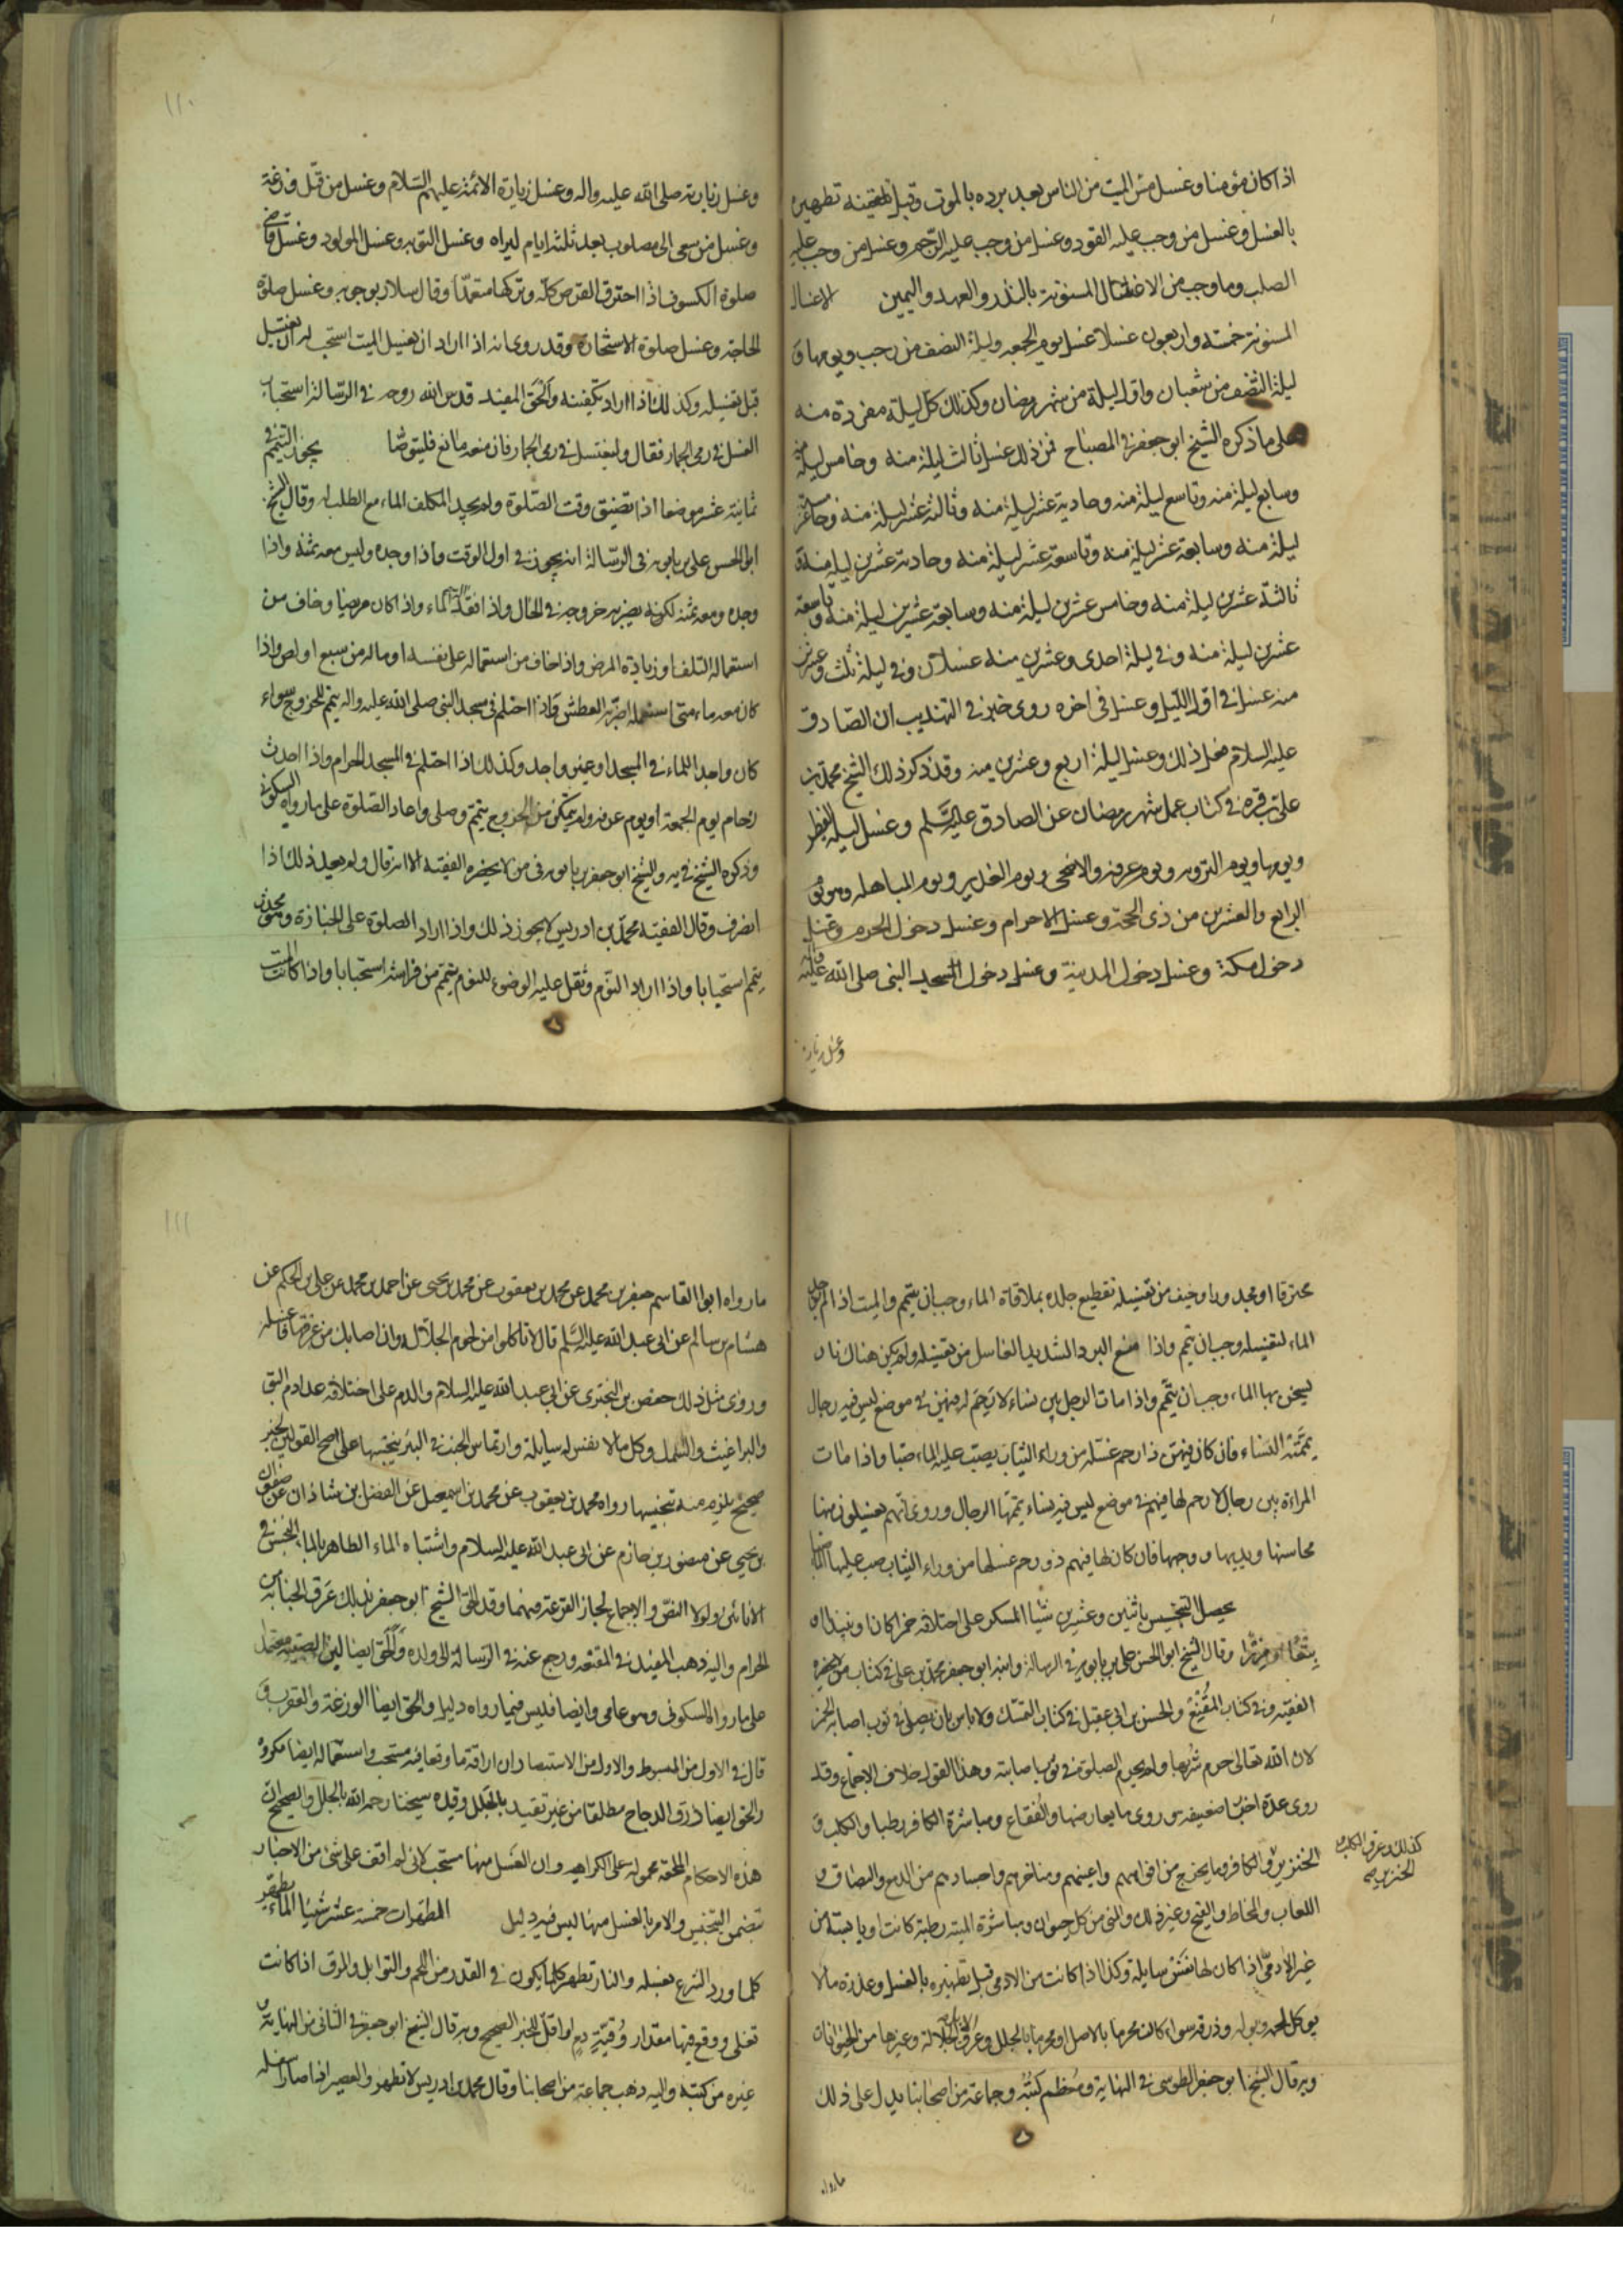 اذا كان مؤمنا وغسل مس الميت من الناس بعد برده بالموت وقبل تطهيره
بالغسل وغسل من وجب عليه القود وغسل من وجب عليه الرجم وغسل من وجب عليه
الصلب وما وجب من الاغسال المسنونة بالنذر والعهد واليمين الاغسال
المسنونة خمسة واربعون غسلا غسل يوم الجمعه وليلة النصف من رجب ويومها و
ليلة النصف من شعبان واول ليلة من شهر رمضان وكذلك كل ليلة مفردة منه
على ما ذكره الشيخ ابو جعفر في المصباح فمن ذلك غسل ثالث ليلة منه وخامس ليلة منه
وسابع ليلة منه وتاسع ليلة منه وحادية عشر ليلة منه وثالثة عشر ليلة منه وخامسة عشر
ليلة منه وسابعة عشر ليلة منه وتاسعة عشر ليلة منه وحادية عشرين ليلة منه و
ثالثة عشرين ليلة منه وخامس عشرين ليلة منه وسابعة عشرين ليلة منه وتاسعة
عشرين ليلة منه وفي ليلة احدى وعشرين منه غسلان وفي ليلة ثلث وعشرين
منه غسل في اول الليل وغسل في اخره روى خبر في التهذيب ان الصادق
عليه السلام فعل ذلك وغسل ليلة اربع وعشرين منه وقد ذكر ذلك الشيخ محمد بن
علي بن قره في كتاب عمل شهر رمضان عن الصادق عليه السلم وغسل ليلة الفطر
ويومها ويوم التروية ويوم عرفة والاضحى ويوم الغدير ويوم المباهلة وهو يوم
الرابع والعشرين من ذي الحجة وغسل الاحرام وغسل دخول الحرم وغسل
دخول مكة وغسل دخول المدينة وغسل دخول المسجد النبي صلى الله عليه واله
وغسل زيارة
١١٠
وغسل زيارته صلى الله عليه واله وغسل زيارة الائمة عليهم السلام وغسل من قتل وزغة
وغسل من سعى الى مصلوب بعد ثلثة ايام ليراه وغسل التوبه وغسل المولود وغسل قاضي
صلوة الكسوف اذا احترق القرص كله وتركها متعمدا وقال سلار بوجوبه وغسل صلوة
الحاجة وغسل صلوة الاستخارة وقد روى انه اذا اراد ان يغسل الميت استحب له ان يغتسل
قبل تغسيله وكذلك اذا اراد تكفينه والحق المفيد قدس الله روحه في الرسالة استحباب
الغسل في رمى الجمار فقال وليغتسل في رمى الجمار فان منعه مانع فليتوضا يجوز التيمم في
ثمانية عشر موضعا اذا تضيق وقت الصلوة ولم يجد المكلف الماء مع الطلب له وقال الشيخ
ابو الحسن علي بن بابويه في الرسالة انه يجوز في اول الوقت واذا وجده وليس معه ثمنه واذا
وجده ومعه ثمنه لكنه يضر به خروجه في الحال واذا افتقد الة الماء واذا كان مريضا وخاف من
استعماله التلف او زيادة المرض واذا خاف من استعماله على نفسه او ماله من سبع او لص واذا
كان معه ماء متى استعمله اضر به العطش واذا احتلم في مسجد النبي صلى الله عليه واله يتيمم للخروج سواء
كان واجدا للماء في المسجد او غير واجد وكذلك اذا احتلم في المسجد الحرام واذا احدث
زحام يوم الجمعة او يوم عرفة ولم يتمكن من الخروج يتمم وصلى واعاد الصلوة على ما رواه السكوني
وذكره الشيخ في يه والشيخ ابو جعفر بن بابويه في من لا يحضره الفقيه الا انه قال ولم يعد ذلك اذا
انصرف وقال الفقيه محمد بن ادريس لا يجوز ذلك واذا اراد الصلوة على الجنازة وهو محدث
يتمم استحبابا واذا اراد النوم وثقل عليه الوضوء للنوم يتمم من فراشه استحبابا واذا كان الميت
محترقا او مجدورا وخيف من تغسيله تقطيع جلده بملاقاة الماء وجب ان يتمم والميت اذا لم يوجد
الماء لتغسيله وجب ان يتمم واذا منع البرد الشديد الغاسل من تغسيله ولم يكن هناك نار
يسخن بها الماء وجب ان يتمم واذا مات الرجل بين نساء لا رحم له فيهن في موضع ليس فيه رجال
يممته النساء فان كان فيهن ذا رحم غسله من وراء الثياب يصب عليه الماء صبا واذا ماتت
المراة بين رجال لا رحم لها فيهم في موضع ليس فيه نساء يممها الرجال وروى انهم يغسلون منها
محاسنها ويديها ووجهها فان كان لها فيهم ذو رحم غسلها من وراء الثياب صب عليها الماء صبا
يحصل التنجيس باثنين وعشرين شيئا المسكر على اختلافه خمرا كان او نبيذا او
بتعا او مزرا وقال الشيخ ابو الحسن علي بن بابويه في الرسالة وابنه ابو جعفر محمد بن علي في كتاب من لا يحضره
الفقيه وفي كتاب المقنع والحسن بن ابي عقيل في كتاب المتمسك ولا باس بان يصلى في ثوب اصابه الخمر
لان الله تعالى حرم شربها ولم يحرم الصلوة في ثوب اصابته وهذا القول خلاف الاجماع وقد
روى عدة اخبار ضعيفه وروى ما يعارضها والفقاع ومباشرة الكافر رطبا والكلب و
الخنزير والكافر وما يخرج من افواههم واعينهم ومناخرهم واجسادهم من الدمع والبصاق و
كذلك وعرق الكلب و
الخنزير صح
اللعاب والمخاط والقيح وغير ذلك والمني من كل حيوان ومباشرة الميتة رطبة كانت او يابسة من
غير الادمي اذا كان لها نفس سايلة وكذا اذا كانت من الادمي قبل تطهيره بالغسل وعذرة ما لا
يوكل لحمه وبوله وذرقه سواء كان محرما بالاصل او محرما بالجلل وعرق الجلالة وغيرها من الحيوانات
وبه قال الشيخ ابو جعفر الطوسي في النهاية ومعظم كتبه وجماعة من اصحابنا يدل على ذلك
ما رواه
١١١
ما رواه ابو القاسم جعفر بن محمد عن محمد بن يعقوب عن محمد بن يحيى عن احمد بن محمد عن علي بن الحكم عن
هشام بن سالم عن ابي عبد الله عليه السلم قال لا تاكلوا من لحوم الجلالة وان اصابك من عرقها فاغسله
وروى مثل ذلك حفص بن البختري عن ابي عبد الله عليه السلام والدم على اختلافه عدا دم البق
والبراغيث والسمك وكل ما لا نفس له سايلة وارتماس الجنب في البئر ينجسها على اصح القولين لخبر
صحيح يلزم منه تنجيسها رواه محمد بن يعقوب عن محمد بن اسمعيل عن الفضل بن شاذان عن صفوان
بن يحيى عن منصور بن حازم عن ابي عبد الله عليه السلام واشتباه الماء الطاهر بالماء النجس في
الانائين ولولا النص والاجماع لجاز القرعة فيهما وقد الحق الشيخ ابو جعفر بذلك عرق الجنابة من
الحرام واليه ذهب المفيد في المقنعه ورجع عنه في الرسالة الى ولده والحق ايضا لبن الصبيه معتمدا
على ما رواه السكوني وهو عامي وايضا فليس فيما رواه دليل والحق ايضا الوزغة والعقرب و
قال في الاول من المبسوط والاول من الاستبصار ان اراقة ما وقعا فيه مستحب واستعماله ايضا مكروه
والحق ايضا ذرق الدجاج مطلقا من غير تقييد بالجلل وقيده شيخنا رحمه الله بالجلل والصحيح ان
هذه الاحكام الملحقه محموله على الكراهيه وان الغسل منها مستحب لانى لم اقف على شئ من الاخبار
تضمن التنجيس والامر بالغسل منها ليس فيه دليل المطهرات خمسة عشر شيئا الماء يطهر
كلما ورد الشرع بغسله والنار تطهر كلما يكون في القدر من اللحم والتوابل والمرق اذا كانت
تغلي ووقع فيها مقدار وقية دم او اقل للخبر الصحيح وبه قال الشيخ ابو جعفر في الثاني من النهاية و
غيره من كتبه واليه ذهب جماعة من اصحابنا وقال محمد بن ادريس لا تطهر والعصير اذا صار اسفله